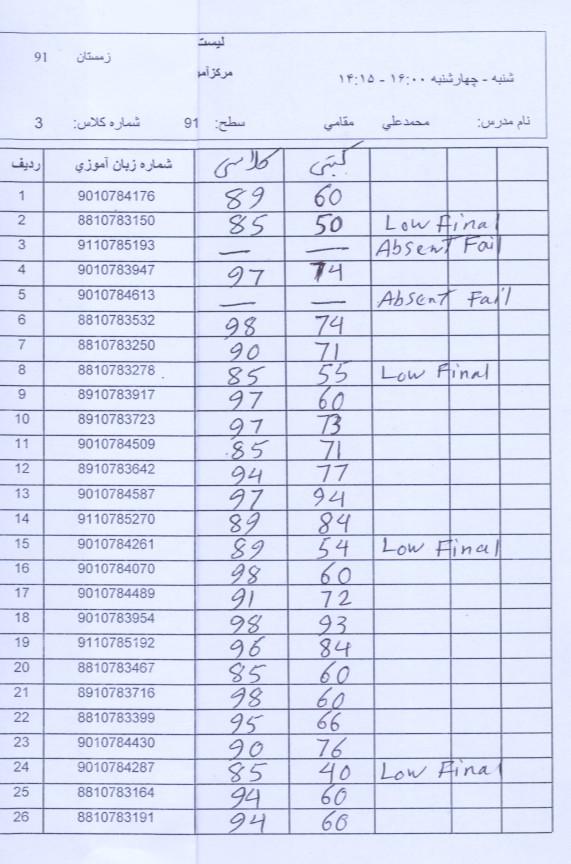 لیست
زمستان 91
مرکزآمو
شنبه - چهارشنبه ۱۶:۰۰ - ۱۴:۱۵
نام مدرس: محمدعلي مقامي سطح: 91 شماره کلاس: 3
ردیف شماره زبان آموزي کلاسی کتبی
1 9010784176 89 60
2 8810783150 85 50 Low Final
3 9110785193 — — Absent Fail
4 9010783947 97 74
5 9010784613 — — Absent Fail
6 8810783532 98 74
7 8810783250 90 71
8 8810783278 85 55 Low Final
9 8910783917 97 60
10 8910783723 97 73
11 9010784509 85 71
12 8910783642 94 77
13 9010784587 97 94
14 9110785270 89 84
15 9010784261 89 54 Low Final
16 9010784070 98 60
17 9010784489 91 72
18 9010783954 98 93
19 9110785192 96 84
20 8810783467 85 60
21 8910783716 98 60
22 8810783399 95 66
23 9010784430 90 76
24 9010784287 85 40 Low Final
25 8810783164 94 60
26 8810783191 94 60